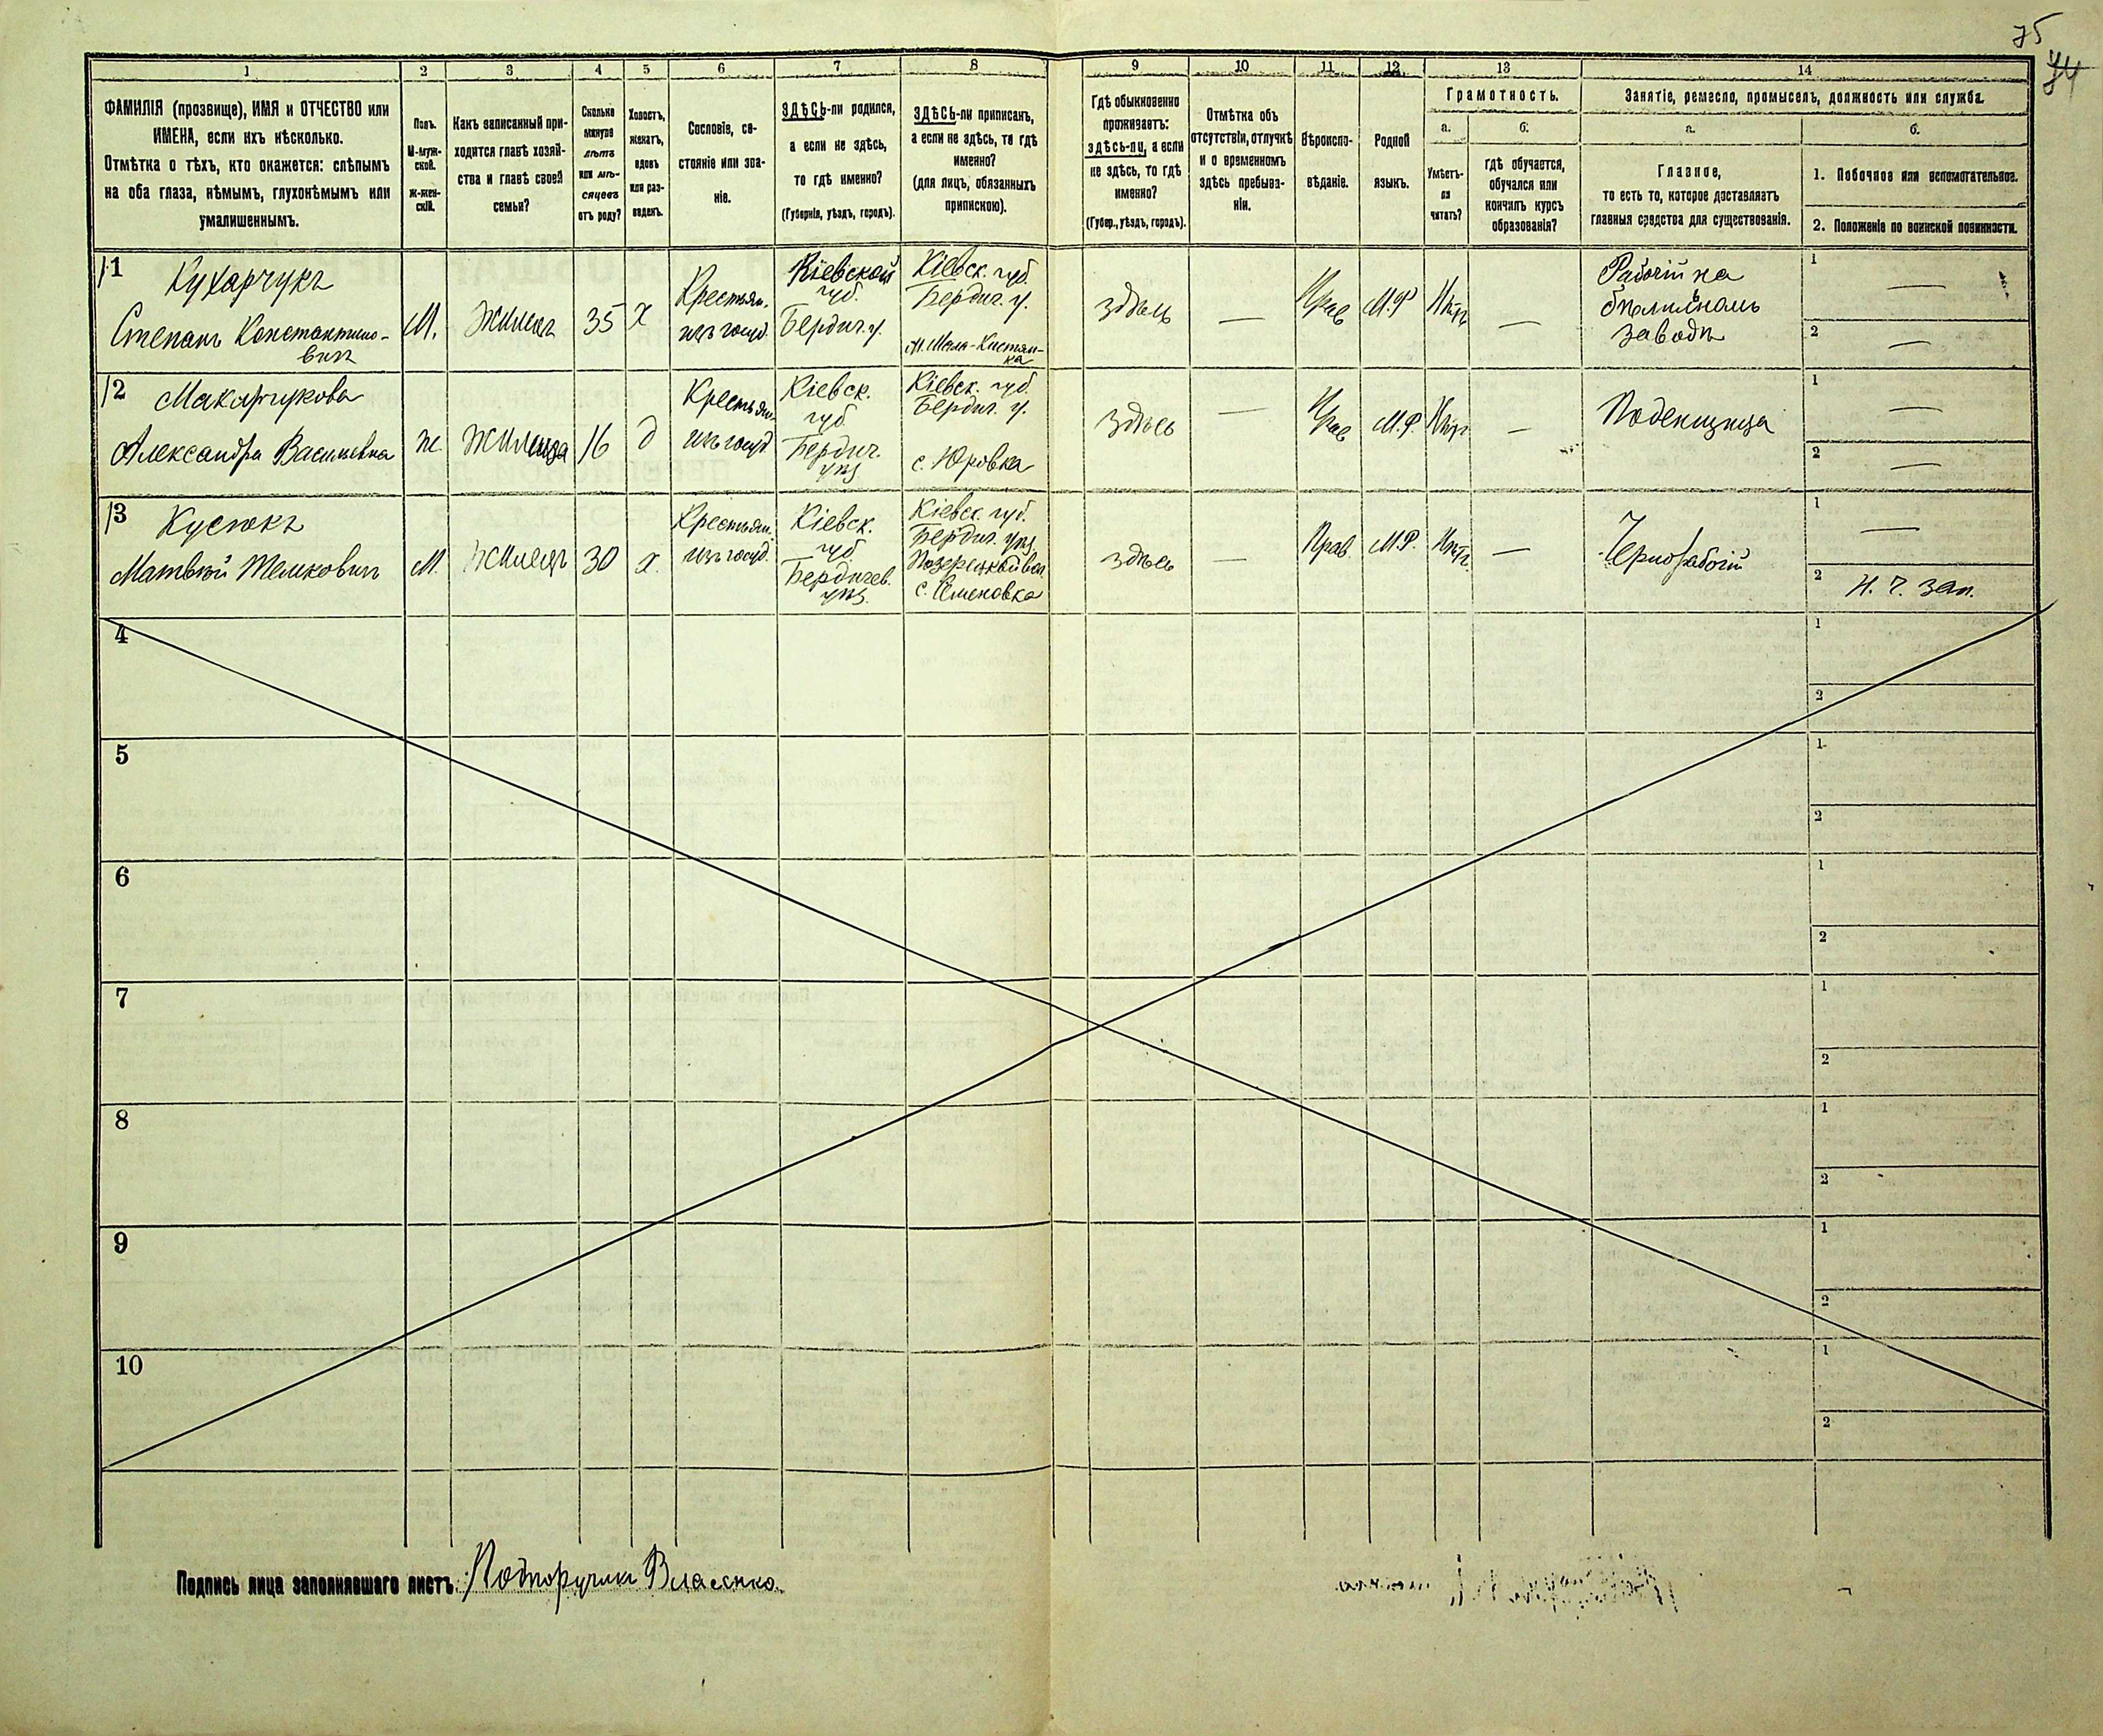 75
74
1 2 3 4 5 6 7 8 9 10 11 12 13 14
ФАМИЛІЯ (прозвище), ИМЯ и ОТЧЕСТВО или
ИМЕНА, если ихъ нѣсколько.
Отмѣтка о тѣхъ, кто окажется: слѣпымъ
на оба глаза, нѣмымъ, глухонѣмымъ или
умалишеннымъ.
Полъ.
М-муж-
ской.
ж-жен-
скій.
Какъ записанный при-
ходится главѣ хозяй-
ства и главѣ своей
семьи?
Сколько
минуло
лѣтъ
или мѣ-
сяцевъ
отъ роду?
Холостъ,
женатъ,
вдовъ
или раз-
веденъ.
Сословіе, со-
стояніе или зва-
ніе.
ЗДѢСЬ-ли родился,
а если не здѣсь,
то гдѣ именно?
(Губернія, уѣздъ, городъ).
ЗДѢСЬ-ли приписанъ,
а если не здѣсь, то гдѣ
именно?
(для лицъ, обязанныхъ
припискою).
Гдѣ обыкновенно
проживаетъ:
здѣсь-ли, а если
не здѣсь, то гдѣ
именно?
(Губер., уѣздъ, городъ).
Отмѣтка объ
отсутствіи, отлучкѣ
и о временномъ
здѣсь пребыва-
ніи.
Вѣроиспо-
вѣданіе.
Родной
языкъ.
Грамотность.
а.
Умѣетъ-
ли
читать?
б.
гдѣ обучается,
обучался или
кончилъ курсъ
образованія?
Занятіе, ремесло, промыселъ, должность или служба.
а.
Главное,
то есть то, которое доставляетъ
главныя средства для существованія.
б.
1. Побочное или вспомогательное.
2. Положеніе по воинской повинности.
1 Кухарчукъ
Степанъ Константино-
вичъ
М.
Жилецъ
35
х
Крестьян.
изъ госуд.
Кіевской
губ.
Бердич. у.
Кіевск. губ.
Бердич. у.
здѣсь
—
Прав
М.Р
Нѣтъ
—
Рабочій на
заводѣ
1 —
2 —
2 Макарчукова
Александра Васильевна
ж
Жилица
16
д
Крестьян.
изъ госуд.
Кіевск.
губ.
Бердич.
уѣз.
Кіевск. губ.
Бердич. у.
с. Юровка
здѣсь
—
Прав
М.Р.
Нѣтъ
—
Поденщица
1 —
2 —
3
М.
Жилецъ
30
х.
Крестьян.
изъ госуд.
Кіевск.
губ
Бердичев.
уѣз.
Кіевск. губ.
Бердич. уѣз.
с. Семеновка
здѣсь
—
Прав
М.Р.
Нѣтъ.
—
Чернорабочій
1 —
2 Н. Ч. Зап.
4 1
2
5 1
2
6 1
2
7 1
2
8 1
2
9 1
2
10 1
2
Подпись лица заполнявшаго листъ: Подпоручикъ Власенко.